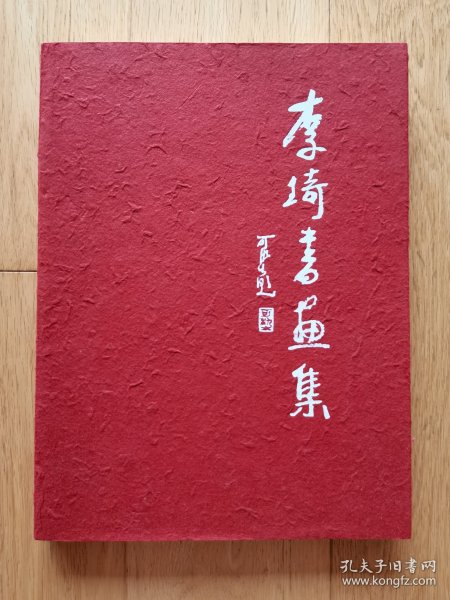 李琦书画集
可染题
孔夫子旧书网
www.kongfz.com